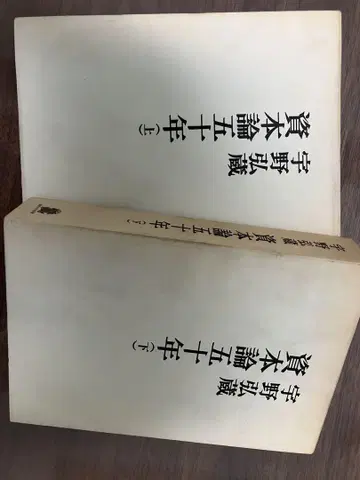 宇野弘蔵
資本論五十年(上)
宇野弘蔵 資本論五十年(下)
宇野弘蔵
資本論五十年(下)